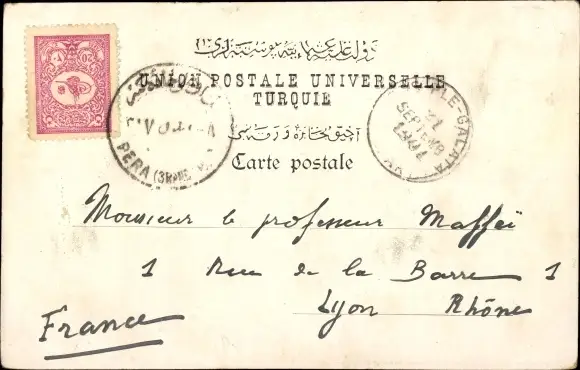 دول عليه عثمانيه پوسته لرى
UNION POSTALE UNIVERSELLE
TURQUIE
آچيق مخابره ورقه سى
Carte postale
PERA
GALATA
21
SEPT
20
Monsieur le professeur Maffeï
1 Rue de la Barre 1
Lyon Rhône
France